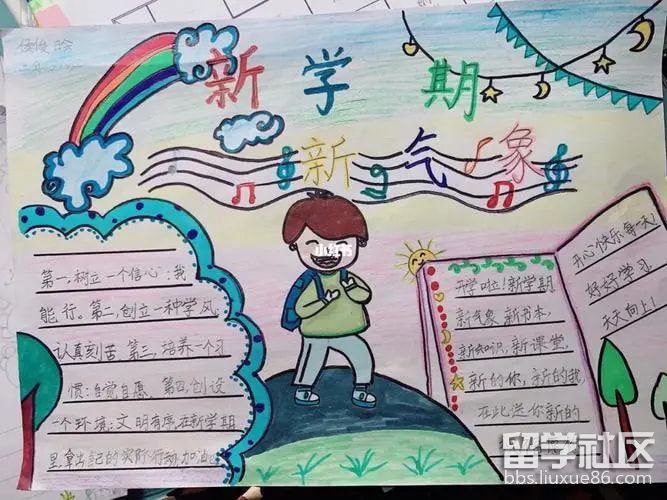 新学期
新气象
小红书
第一,树立一个信心:我
能行。第二,创立一种学风:
认真刻苦。第三,培养一个习
惯:自觉自愿。第四,创设
一个环境:文明有序,在新学期
里,拿出自己的实际行动,加油
开学啦!新学期
新气象 新书本,
新知识,新课堂,
新的你,新的我,
在此送你新的
开心快乐每一天!
好好学习
天天向上!
留学社区
bbs.liuxue86.com